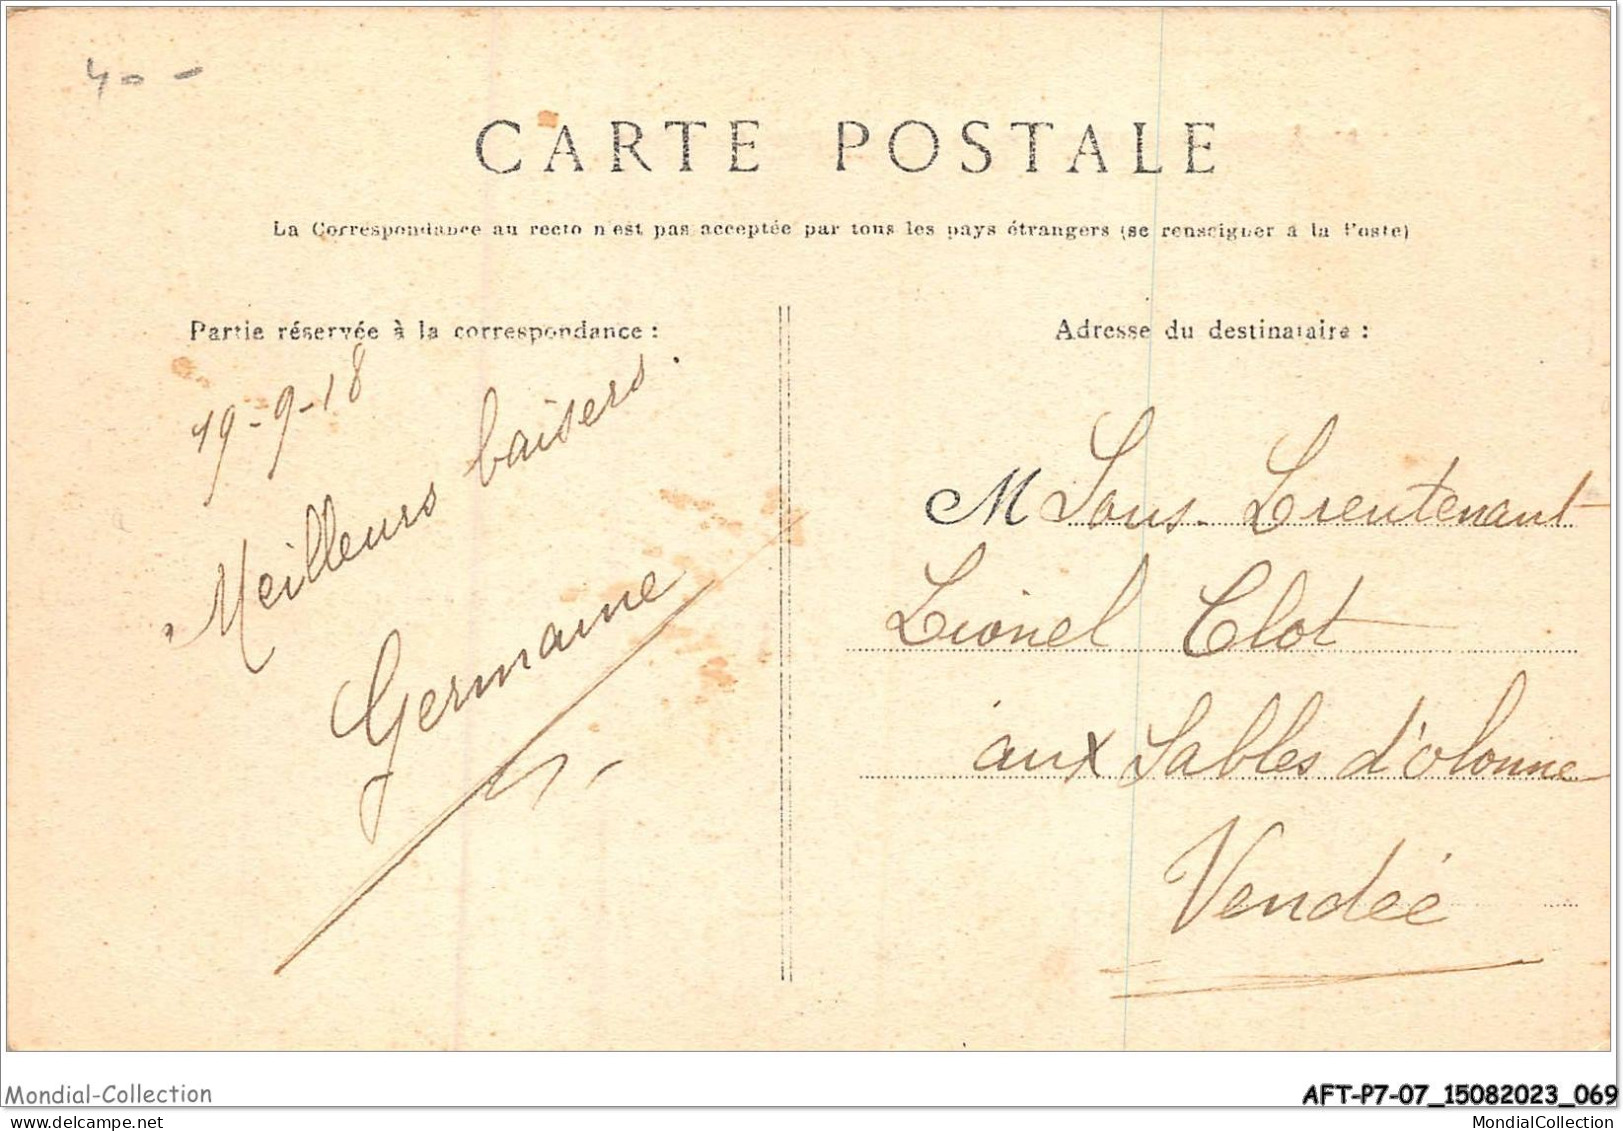 40 -
CARTE POSTALE
La Correspondance au recto n'est pas acceptée par tous les pays étrangers (se renseigner à la Poste)
Partie réservée à la correspondance :
19-9-18
Meilleurs baisers.
Germaine
Adresse du destinataire :
M Sous-Lieutenant
Lionel Clot
aux Sables d'olonne
Vendée
Mondial-Collection
AFT-P7-07_15082023_069
MondialCollection
MondialCollection